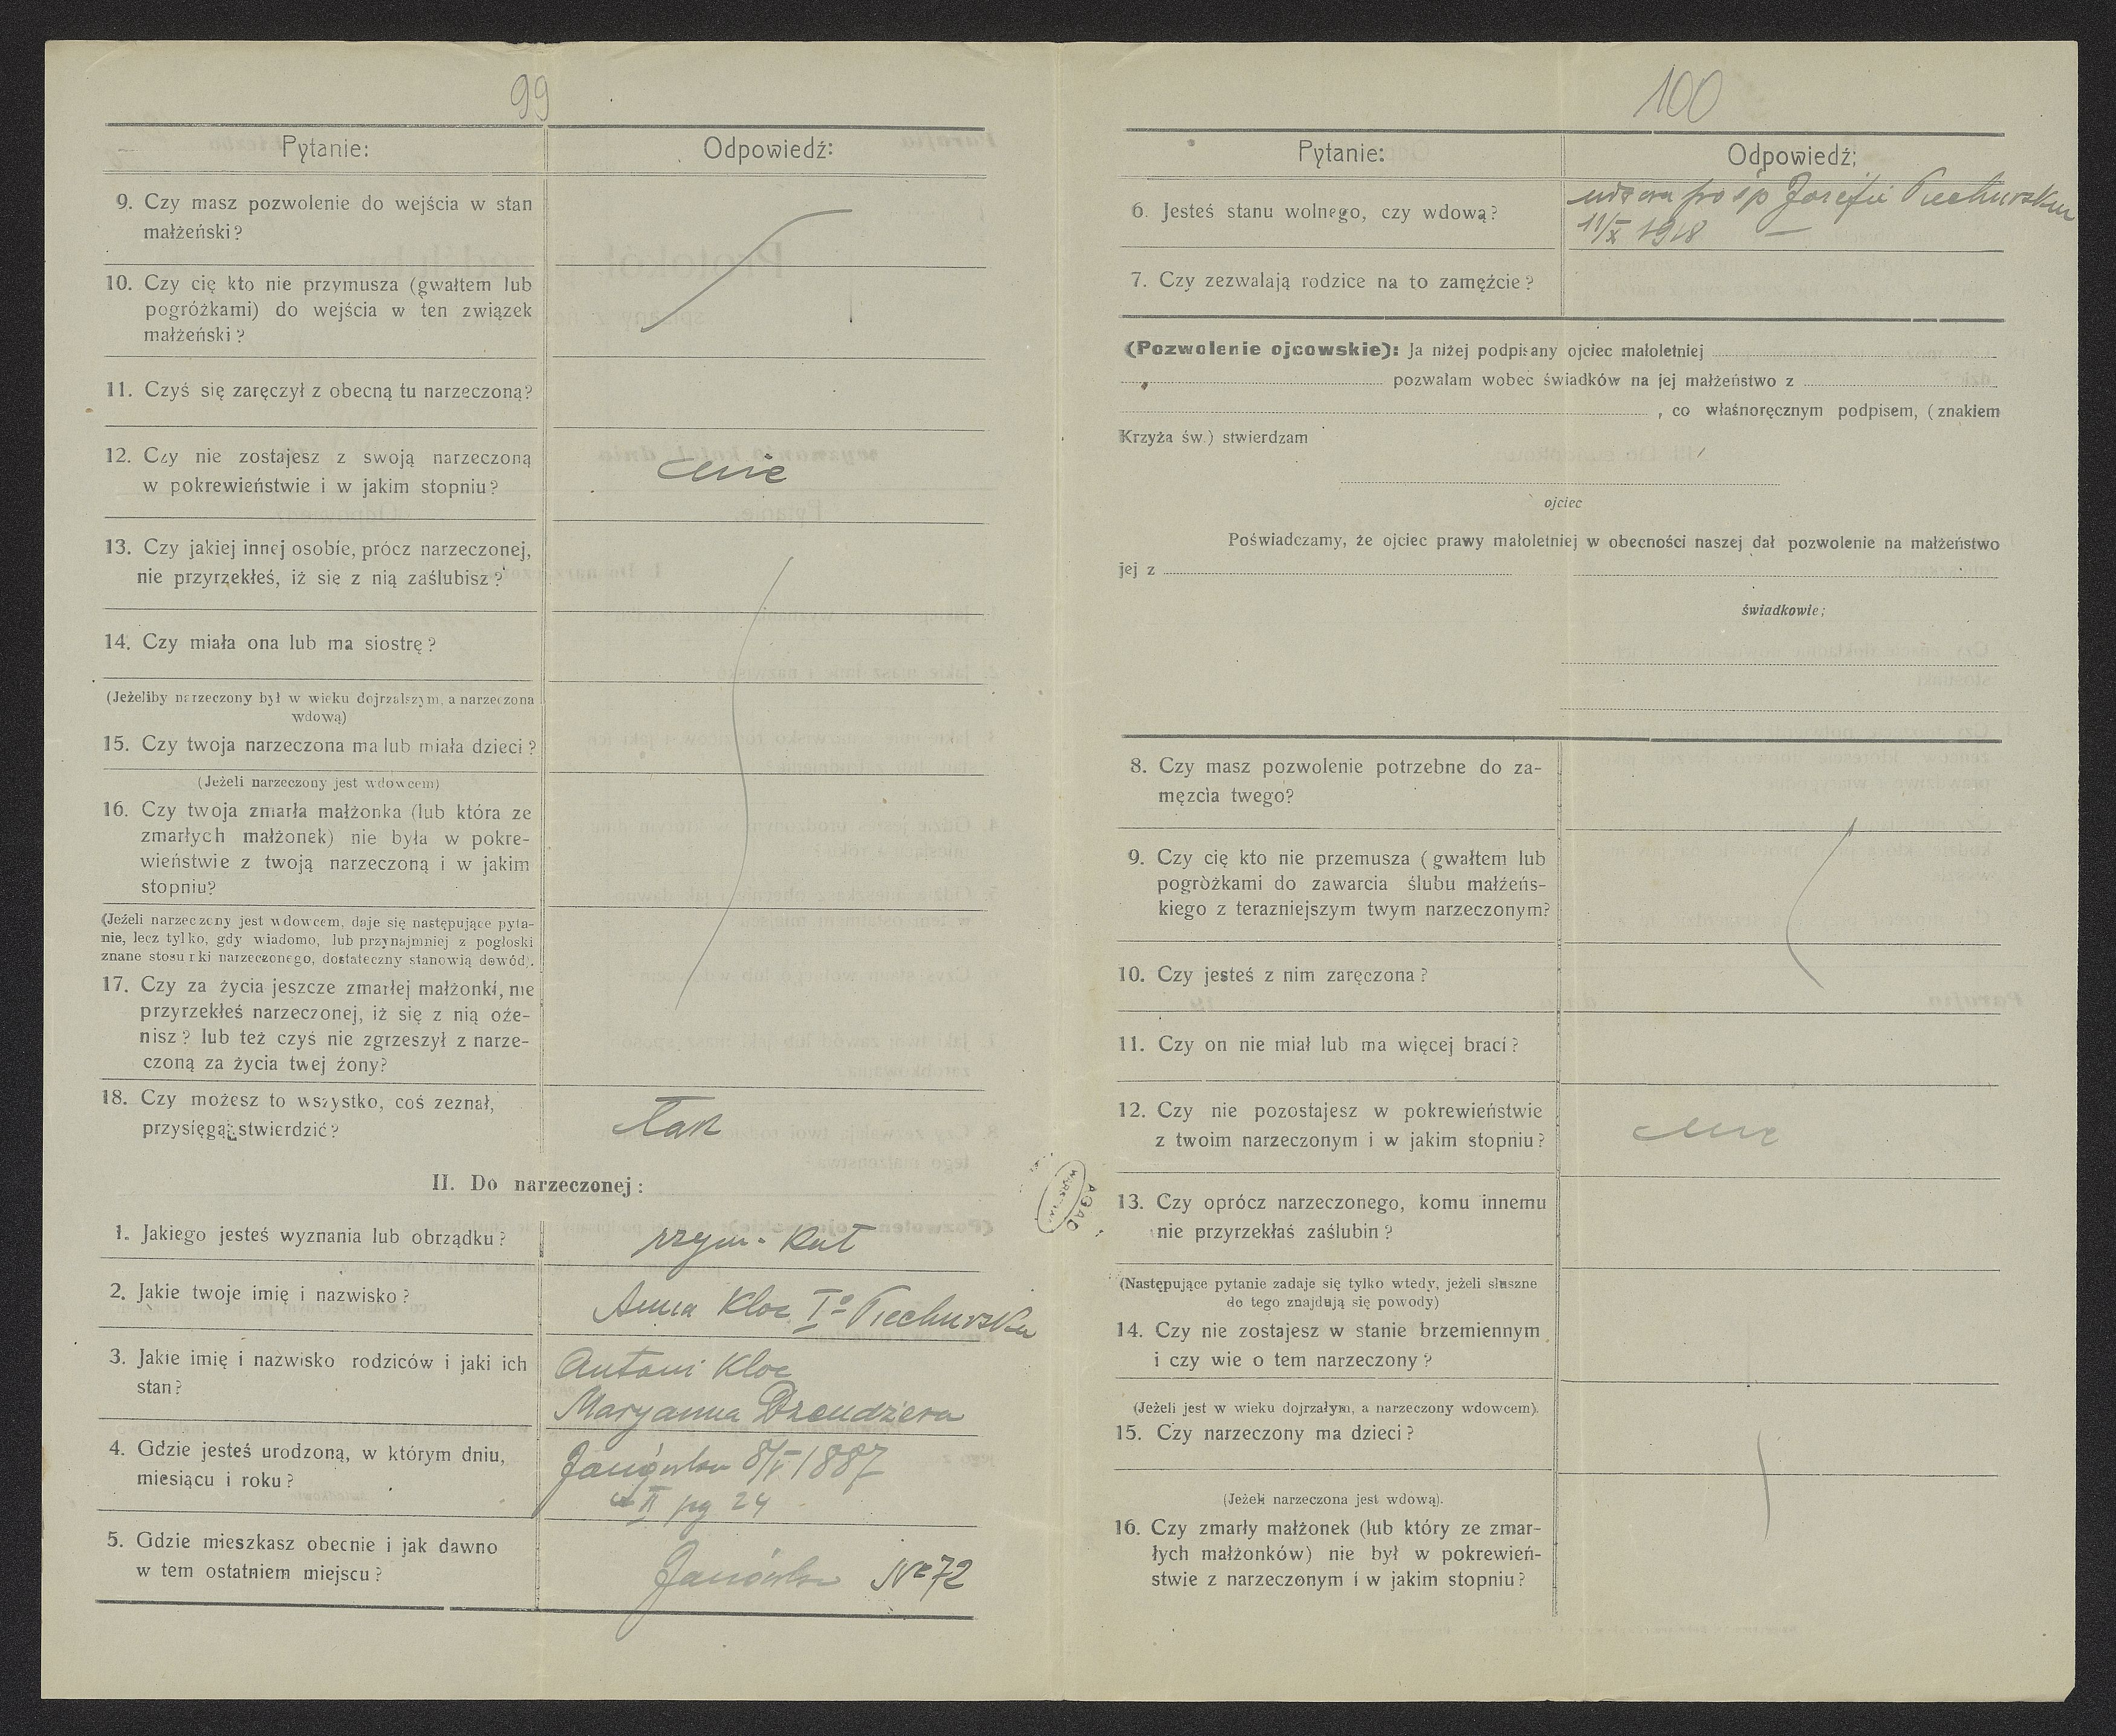 99
Pytanie:
Odpowiedź:
9. Czy masz pozwolenie do wejścia w stan
małżeński?
10. Czy cię kto nie przymusza (gwałtem lub
pogróżkami) do wejścia w ten związek
małżeński?
11. Czyś się zaręczył z obecną tu narzeczoną?
12. Czy nie zostajesz z swoją narzeczoną
w pokrewieństwie i w jakim stopniu?
nie
13. Czy jakiej innej osobie, prócz narzeczonej,
nie przyrzekłeś, iż się z nią zaślubisz?
14. Czy miała ona lub ma siostrę?
(Jeżeliby narzeczony był w wieku dojrzalszym, a narzeczona
wdową)
15. Czy twoja narzeczona ma lub miała dzieci?
(Jeżeli narzeczony jest wdowcem)
16. Czy twoja zmarła małżonka (lub która ze
zmarłych małżonek) nie była w pokre-
wieństwie z twoją narzeczoną i w jakim
stopniu?
(Jeżeli narzeczony jest wdowcem, daje się następujące pyta-
nie, lecz tylko, gdy wiadomo, lub przynajmniej z pogłoski
znane stosunki narzeczonego, dostateczny stanowią dowód).
17. Czy za życia jeszcze zmarłej małżonki, nie
przyrzekłeś narzeczonej, iż się z nią oże-
nisz? lub też czyś nie zgrzeszył z narze-
czoną za życia twej żony?
18. Czy możesz to wszystko, coś zeznał,
przysięgą stwierdzić?
Tak
II. Do narzeczonej:
1. Jakiego jesteś wyznania lub obrządku?
rzym. Kat
2. Jakie twoje imię i nazwisko?
Anna Kloc Iº Piechurska
3. Jakie imię i nazwisko rodziców i jaki ich
stan?
Antoni Kloc
Maryanna Drendżera
4. Gdzie jesteś urodzoną, w którym dniu,
miesiącu i roku?
Janówka 8/V 1887
II pg 24
5. Gdzie mieszkasz obecnie i jak dawno
w tem ostatniem miejscu?
Janówka No 72
AGAD
100
Pytanie:
Odpowiedź;
6. Jesteś stanu wolnego, czy wdową?
wdowa po śp Józefie Piechurskim
11/X 1918 —
7. Czy zezwalają rodzice na to zamężcie?
(Pozwolenie ojcowskie): Ja niżej podpisany ojciec małoletniej
pozwalam wobec świadków na jej małżeństwo z
, co właśnoręcznym podpisem, (znakiem
Krzyża św.) stwierdzam
ojciec
Poświadczamy, że ojciec prawy małoletniej w obecności naszej dał pozwolenie na małżeństwo
jej z
świadkowie;
8. Czy masz pozwolenie potrzebne do za-
męzcia twego?
9. Czy cię kto nie przemusza (gwałtem lub
pogròżkami do zawarcia ślubu małżeńs-
kiego z terazniejszym twym narzeczonym?
10. Czy jesteś z nim zaręczona?
11. Czy on nie miał lub ma więcej braci?
12. Czy nie pozostajesz w pokrewieństwie
z twoim narzeczonym i w jakim stopniu?
nie
13. Czy oprócz narzeczonego, komu innemu
nie przyrzekłaś zaślubin?
(Następujące pytanie zadaje się tylko wtedy, jeżeli słuszne
do tego znajdują się powody)
14. Czy nie zostajesz w stanie brzemiennym
i czy wie o tem narzeczony?
(Jeżeli jest w wieku dojrzałym, a narzeczony wdowcem).
15. Czy narzeczony ma dzieci?
(Jeżeli narzeczona jest wdową).
16. Czy zmarły małżonek (lub który ze zmar-
łych małżonków) nie był w pokrewień-
stwie z narzeczonym i w jakim stopniu?